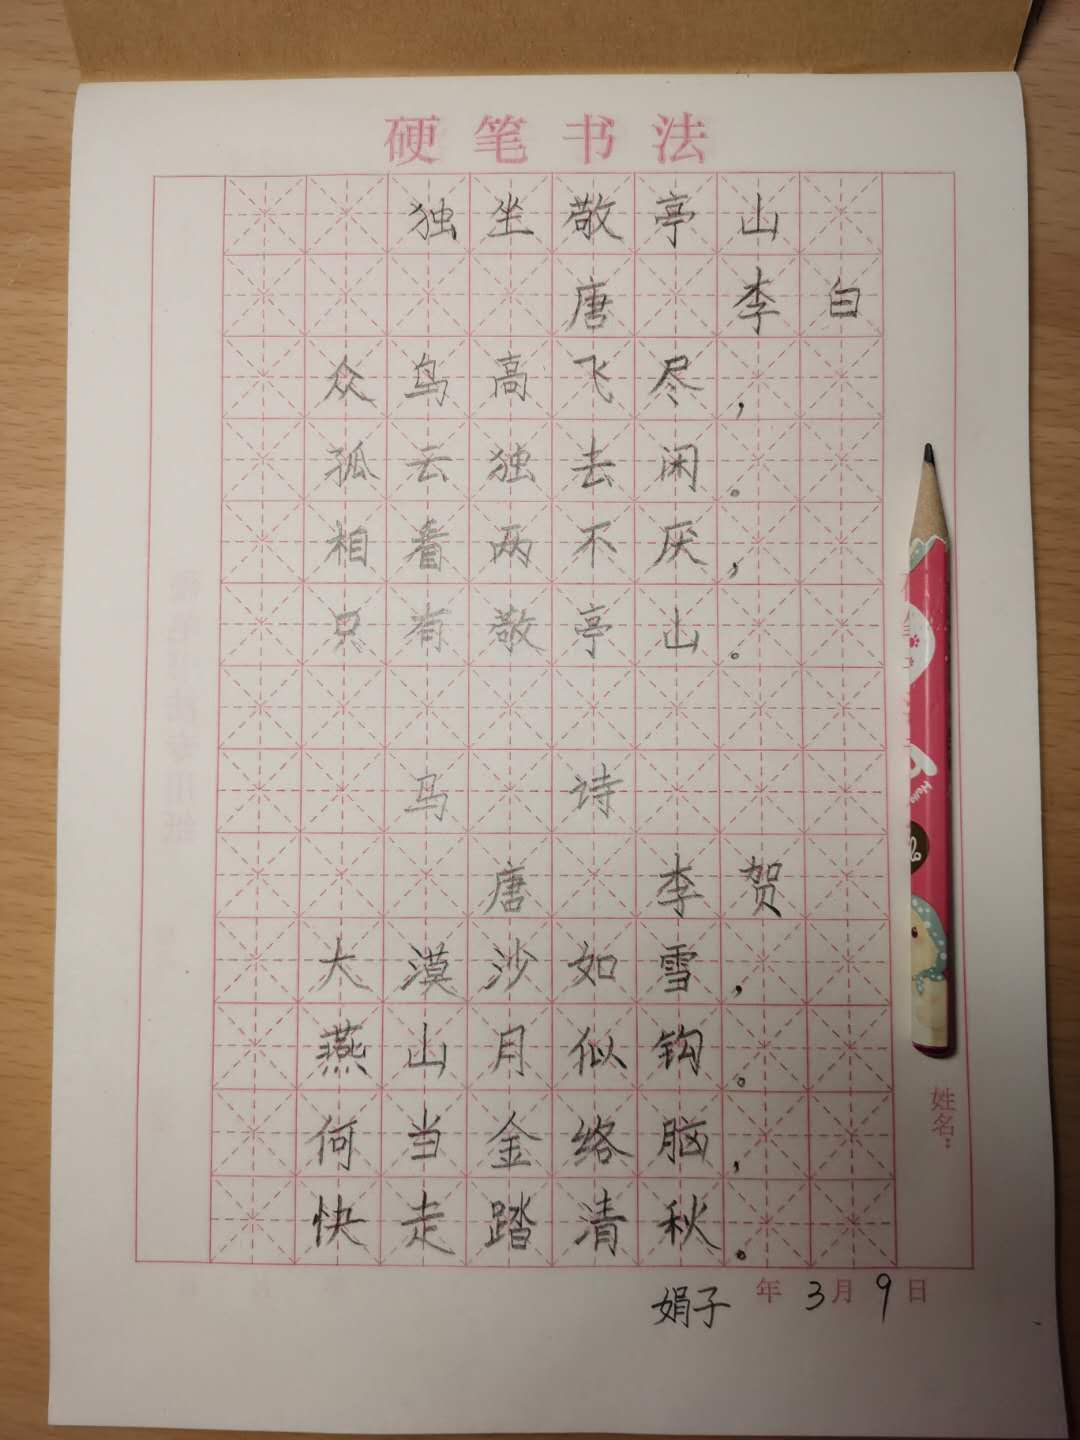 硬笔书法
独坐敬亭山
唐 李白
众鸟高飞尽，
孤云独去闲。
相看两不厌，
只有敬亭山。
马 诗
唐 李贺
大漠沙如雪，
燕山月似钩。
何当金络脑，
快走踏清秋。
姓名：
娟子 年 3月 9日
Hello